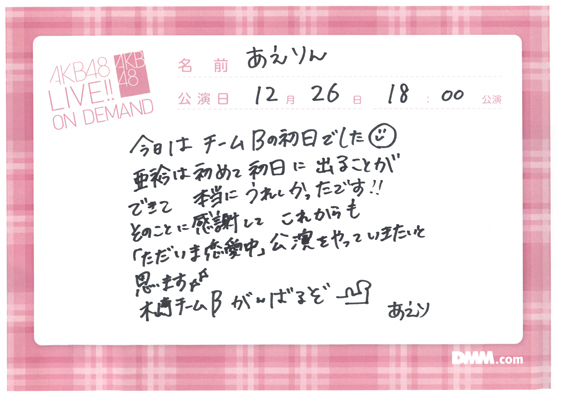 AKB48
LIVE!!
ON DEMAND
AKB
48
名前 あえりん
公演日 12月 26日 18:00公演
今日は チームBの初日でした
亜衿は初めて初日に 出ることが
できて 本当にうれしかったです!!
そのことに感謝して これからも
「ただいま恋愛中」公演をやっていきたいと
思ます
木﨑チームB がんばるぞ
あえり
DMM.com